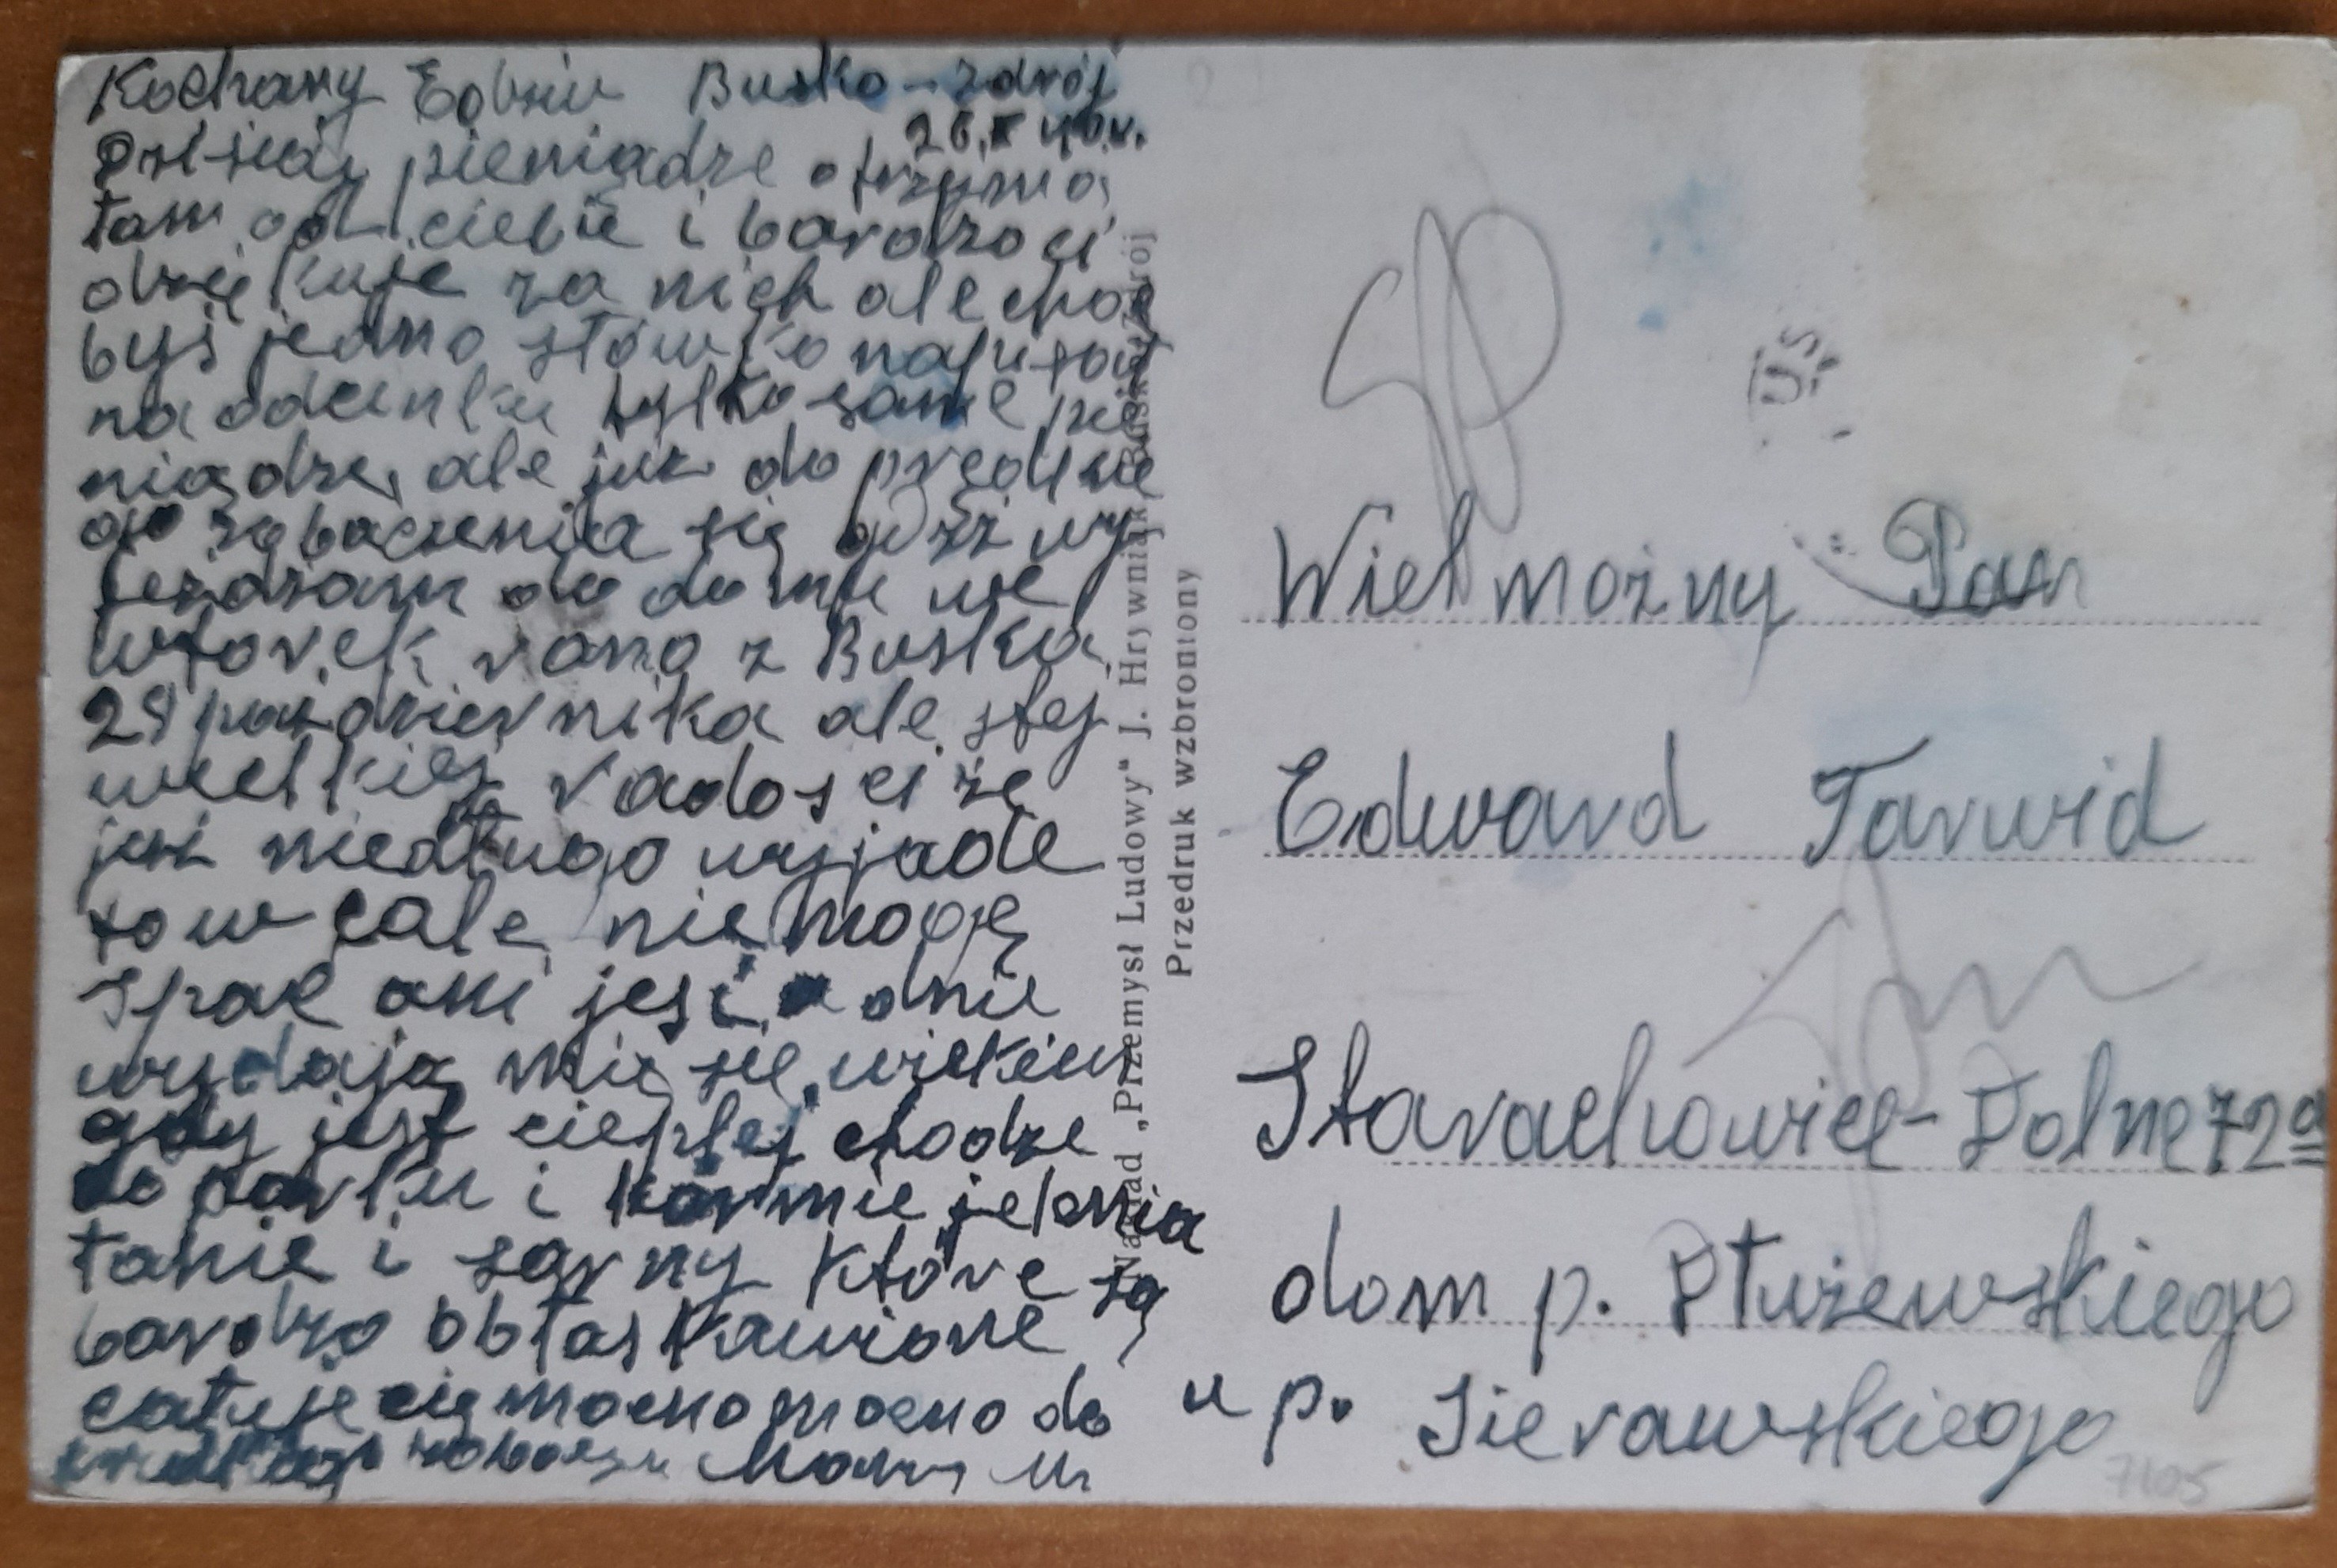 Kochany Edziu Busko-Zdrój
26.X 40r.
Dzisiaj pieniądze otrzyma
łam od ciebie i bardzo ci
dziękuje za nich ale choć
byś jedno słówko napisał
na odcinku tylko same pie
niądze, ale już do prędkie
go zobaczenia się gdyż wy
jeżdżam do domu we
wtorek rano z Buska
29 października ale stej
wielkiej radości że
już niedługo wyjade
to wcale nie mogę
spać ani jeść, a dnie
wydają mię się wiekiem
gdy jest cieplej chodze
do parku i karmie jelenia
łanie i sarny które są
bardzo obłaskawione
całuje cię mocno mocno do
zobaczenia
Nakład „Przemysł Ludowy" J. Hrywniak, Busko-Zdrój
Przedruk wzbroniony
Wielmożny Pan
Edward Tarwid
Starachowice-Dolne 72a
dom p. Płużewskiego
u p. Sierawskiego
US
7105